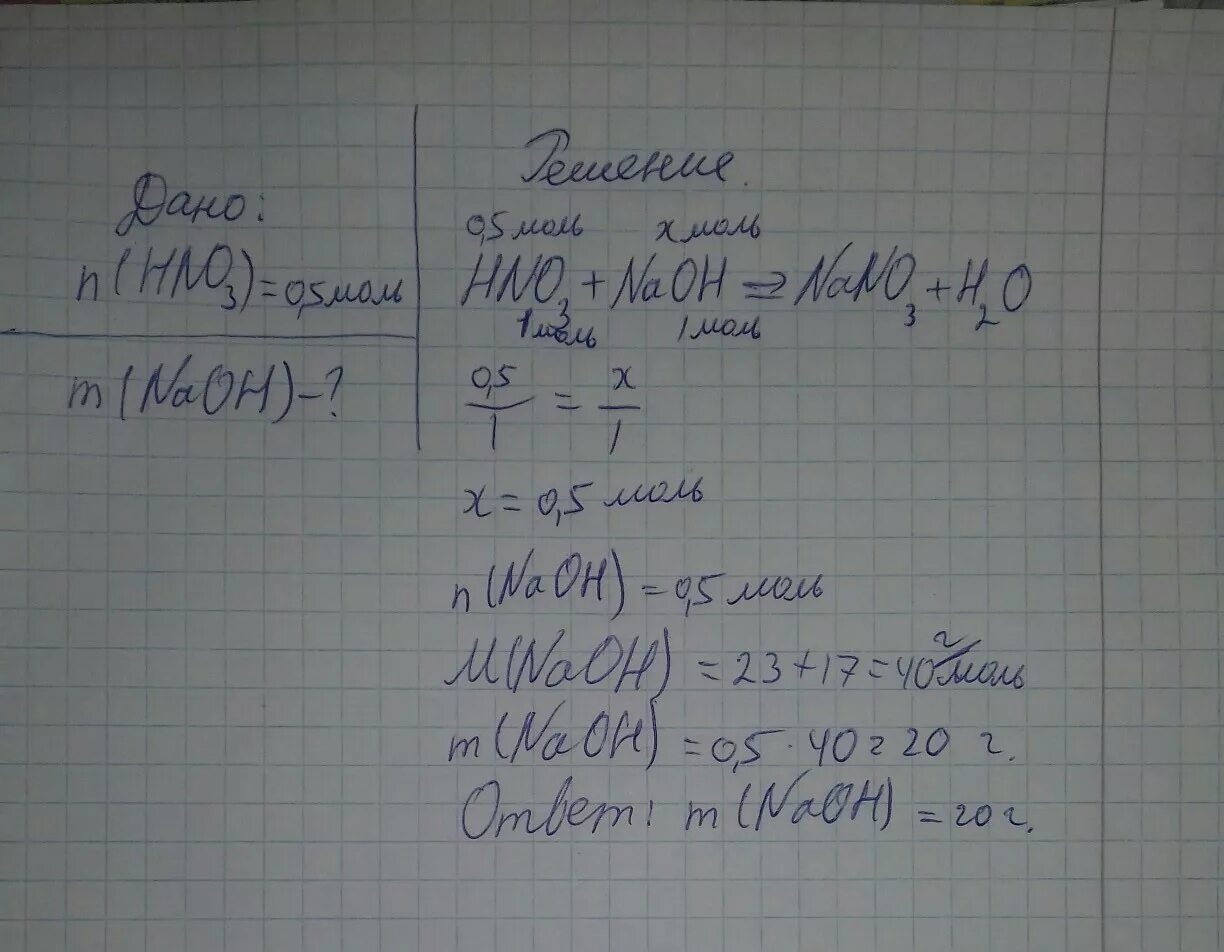 Дано:
n(HNO₃)=0,5моль
m(NaOH)-?
Решение.
0,5 моль x моль
HNO₃+NaOH=NaNO₃+H₂O
1моль 1моль
0,5/1 = x/1
x=0,5 моль
n(NaOH)=0,5 моль
M(NaOH)=23+17=40г/моль
m(NaOH)=0,5·40=20 г.
Ответ: m(NaOH)=20г.